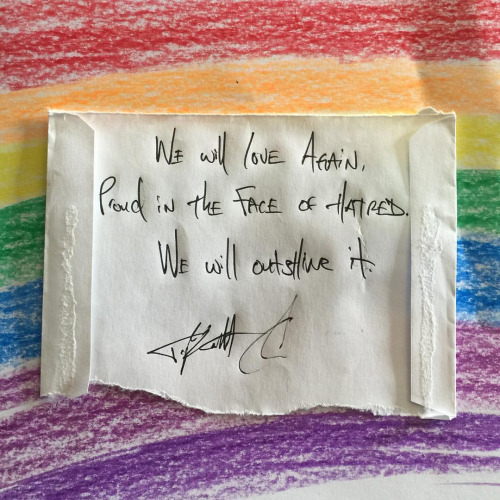 WE will love AgAiN,
Proud iN the FACE of HATRED.
WE will outshine it.